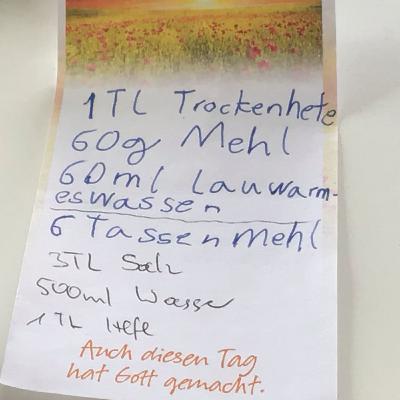 1TL Trockenhefe
60g Mehl
60ml Lauwarm-
eswassen
6 Tassen Mehl
3TL Salz
500ml Wasser
1 TL Hefe
Auch diesen Tag
hat Gott gemacht.